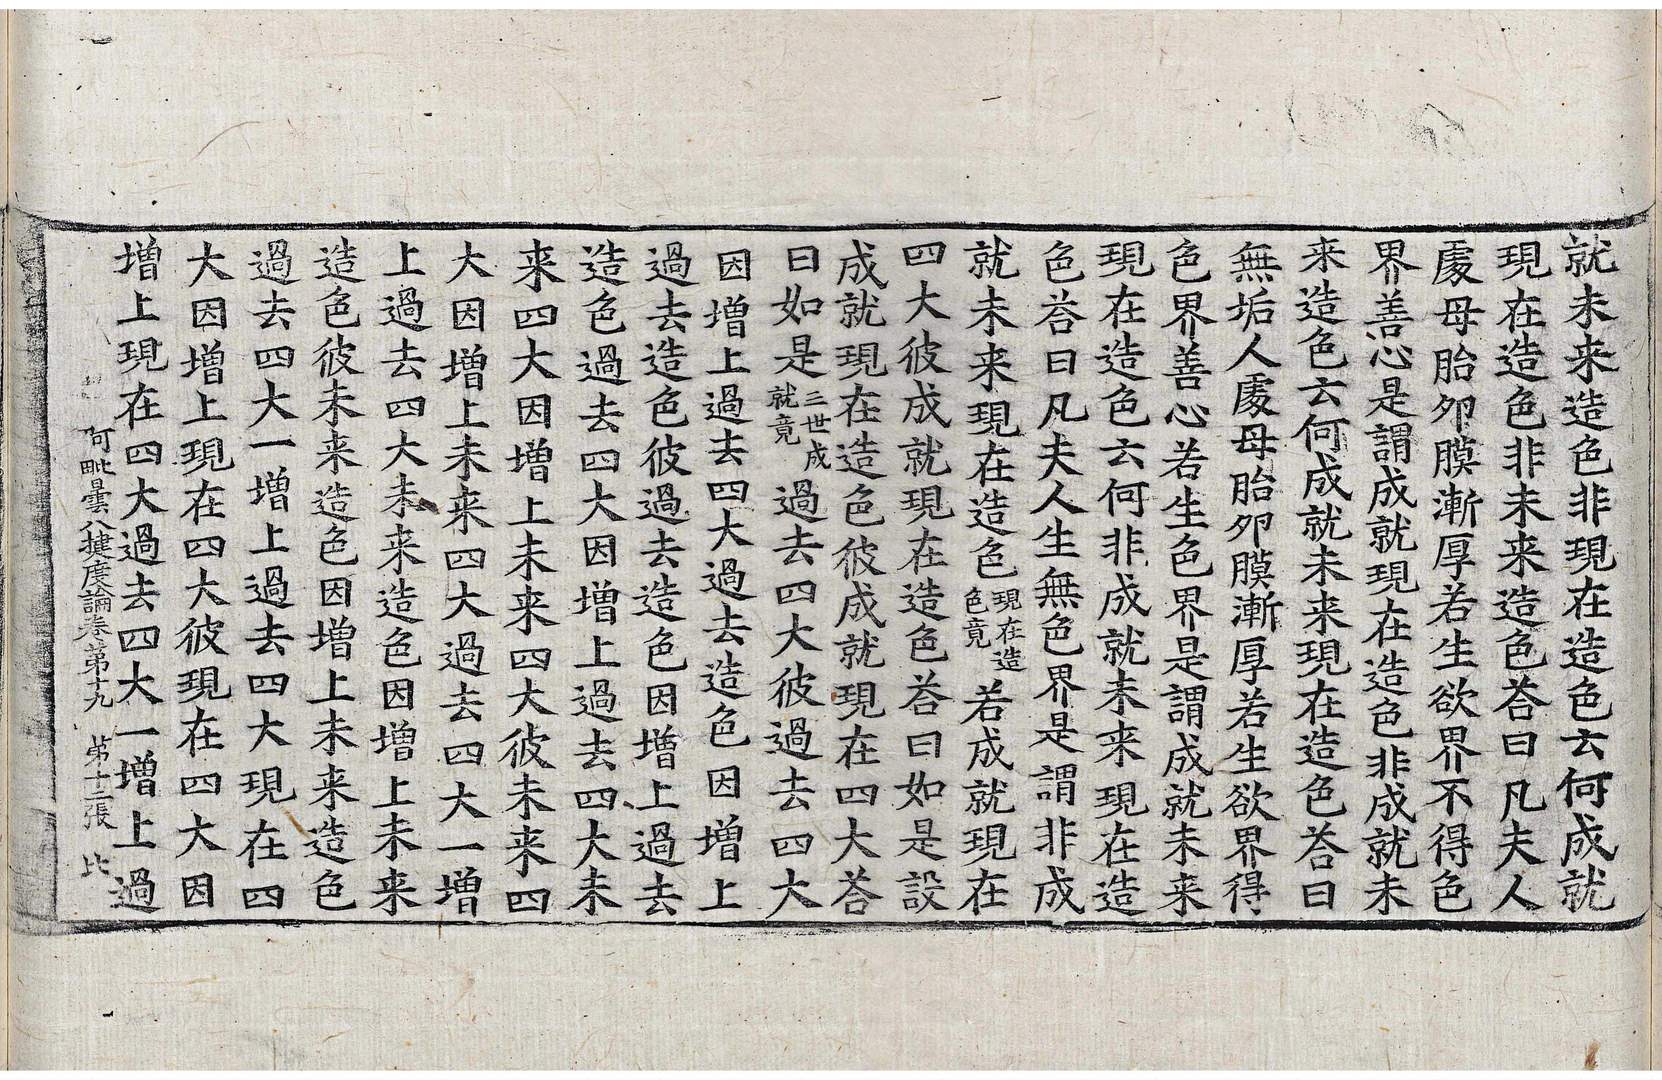 就未来造色非現在造色云何成就
現在造色非未来造色荅曰凡夫人
處母胎卵膜漸厚若生欲界不得色
界善心是謂成就現在造色非成就未
来造色云何成就未来現在造色荅曰
無垢人處母胎卵膜漸厚若生欲界得
色界善心若生色界是謂成就未来
現在造色云何非成就未来現在造
色荅曰凡夫人生無色界是謂非成
就未来現在造色現在造色竟若成就現在
四大彼成就現在造色荅曰如是設
成就現在造色彼成就現在四大荅
曰如是三世成就竟過去四大彼過去四大
因增上過去四大過去造色因增上
過去造色彼過去造色因增上過去
造色過去四大因增上過去四大未
来四大因增上未来四大彼未来四
大因增上未来四大過去四大一增
上過去四大未来造色因增上未来
造色彼未来造色因增上未来造色
過去四大一增上過去四大現在四
大因增上現在四大彼現在四大因
增上現在四大過去四大一增上過
阿毗曇八揵度論卷第十九 第十二張 比